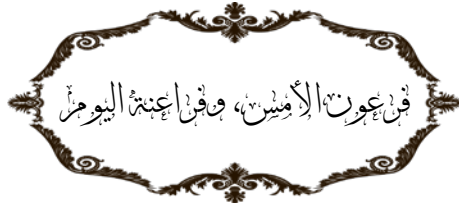 فرعون الأمس، وفراعنة اليوم